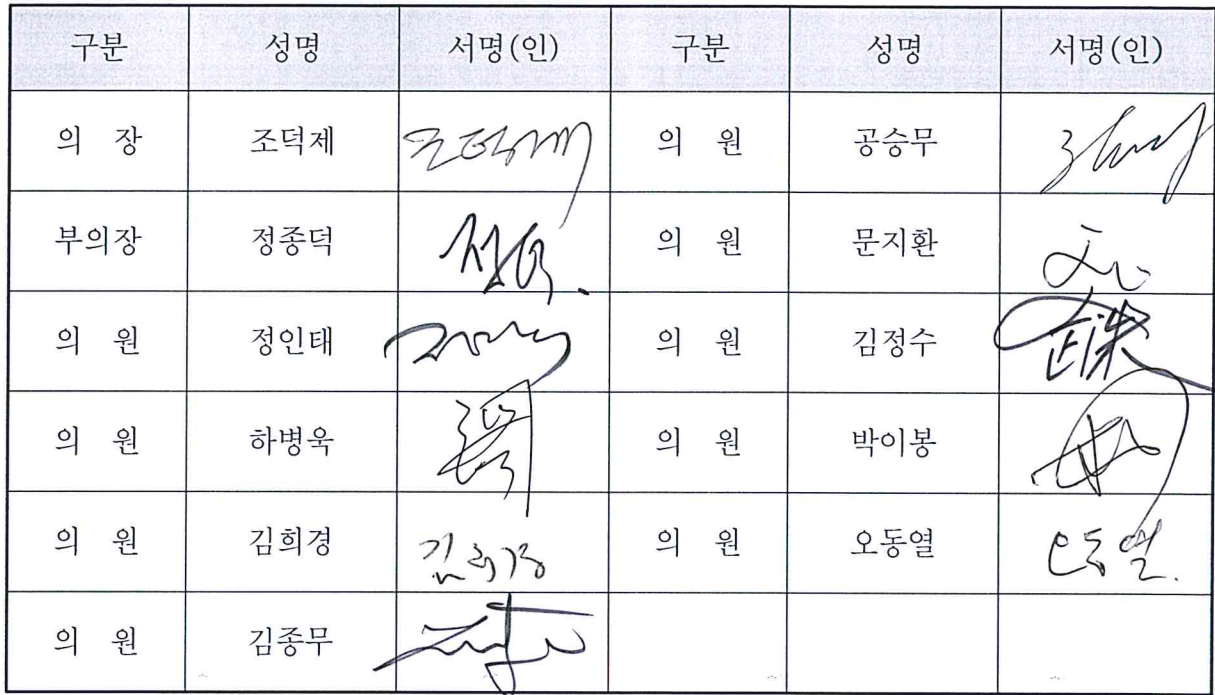 구분 성명 서명(인) 구분 성명 서명(인)
의 장 조덕제 조덕제 의 원 공승무
부의장 정종덕 의 원 문지환
의 원 정인태 의 원 김정수
의 원 하병욱 의 원 박이봉
의 원 김희경 김희경 의 원 오동열 오동열.
의 원 김종무